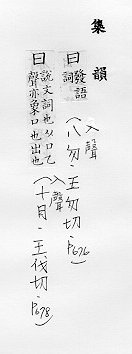 集韻
曰 發語詞 入聲(八勿.王勿切.P676)
曰 說文詞也从口乙聲亦象口气出也 入聲(十月.王伐切.P678)